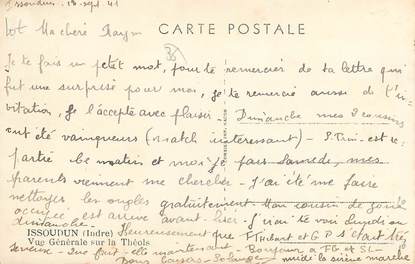 Issoudun - 18 sept 41
CARTE POSTALE
Ma chère Raym
Je te fais un petit mot, pour te remercier de ta lettre qui
fut une surprise pour moi, je te remercie aussi de l'in
vitation, je l'accepte avec plaisir. Dimanche mes 2 cousins
ont été vainqueurs (match intéressant) - S. Trini - est re
partie ce matin et moi je pars samedi, mes
parents viennent me chercher - J'ai été me faire
nettoyer les ongles gratuitement. Mon cousin de zone
occupée est arrivé avant-hier. J'irai te voir lundi ou
dimanche -
ISSOUDUN (Indre)
Vue Générale sur la Théols
Heureusement que F Thibaut et G P s'étaient
Bonjour à FG et SL -
midi la sirène marche